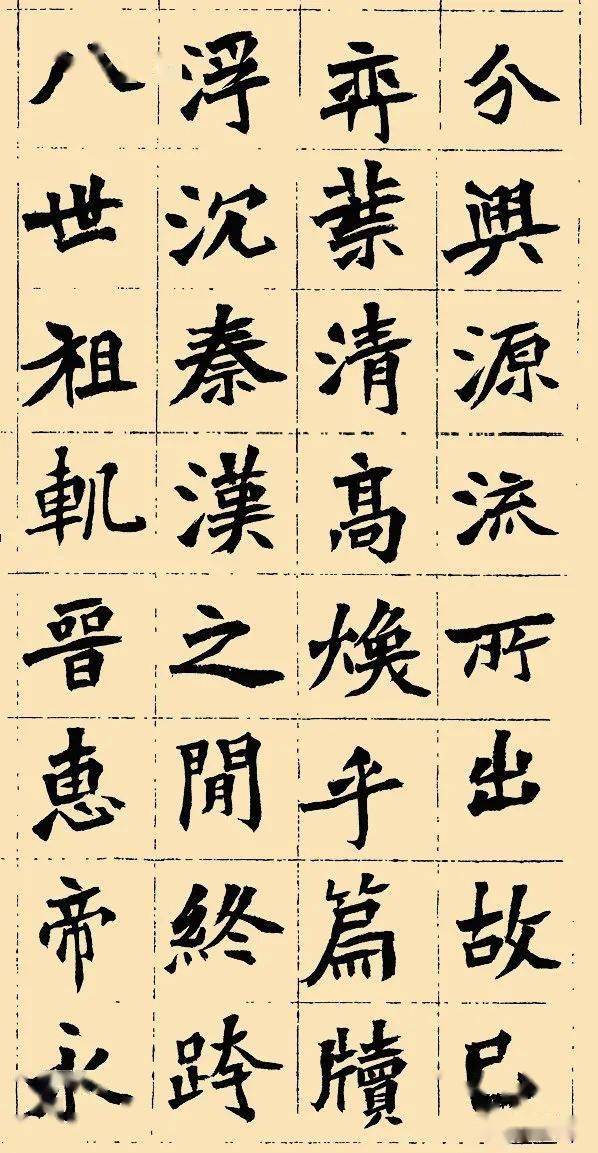 分興源流所出故已
弈葉清髙煥乎篇牘
浮沉秦漢之閒終跨
八世祖軌晉惠帝永